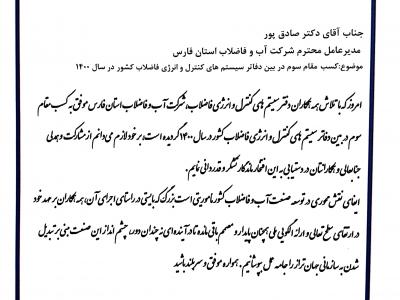 جناب آقای دکتر صادق پور
مدیرعامل محترم شرکت آب و فاضلاب استان فارس
موضوع:کسب مقام سوم در بین دفاتر سیستم های کنترل و انرژی فاضلاب کشور در سال ۱۴۰۰
امروز که با تلاش همه همکاران دفتر سیستم های کنترل و انرژی فاضلاب، شرکت آب و فاضلاب استان فارس موفق به کسب مقام
سوم در بین دفاتر سیستم های کنترل و انرژی فاضلاب کشور در سال ۱۴۰۰ گردیده است، بر خود لازم می دانم از مشارکت و همدلی
جنابعالی و همکارانتان در دستیابی به این افتخار ماندگار تشکر و قدردانی نمایم.
ایفای نقش محوری در توسعه صنعت آب و فاضلاب کشور ماموریتی است بزرگ که بایستی در راستای اجرای آن، همه همکاران بر عهد خود
در ارتقای سطح تعالی و ارائه الگویی ملی همچنان پایدار و مصمم باقی مانده تا در آینده ای نه چندان دور، چشم انداز این صنعت مبنی بر تبدیل
شدن به سازمانی جهان تراز را جامه عمل بپوشانیم. همواره موفق و سربلند باشید